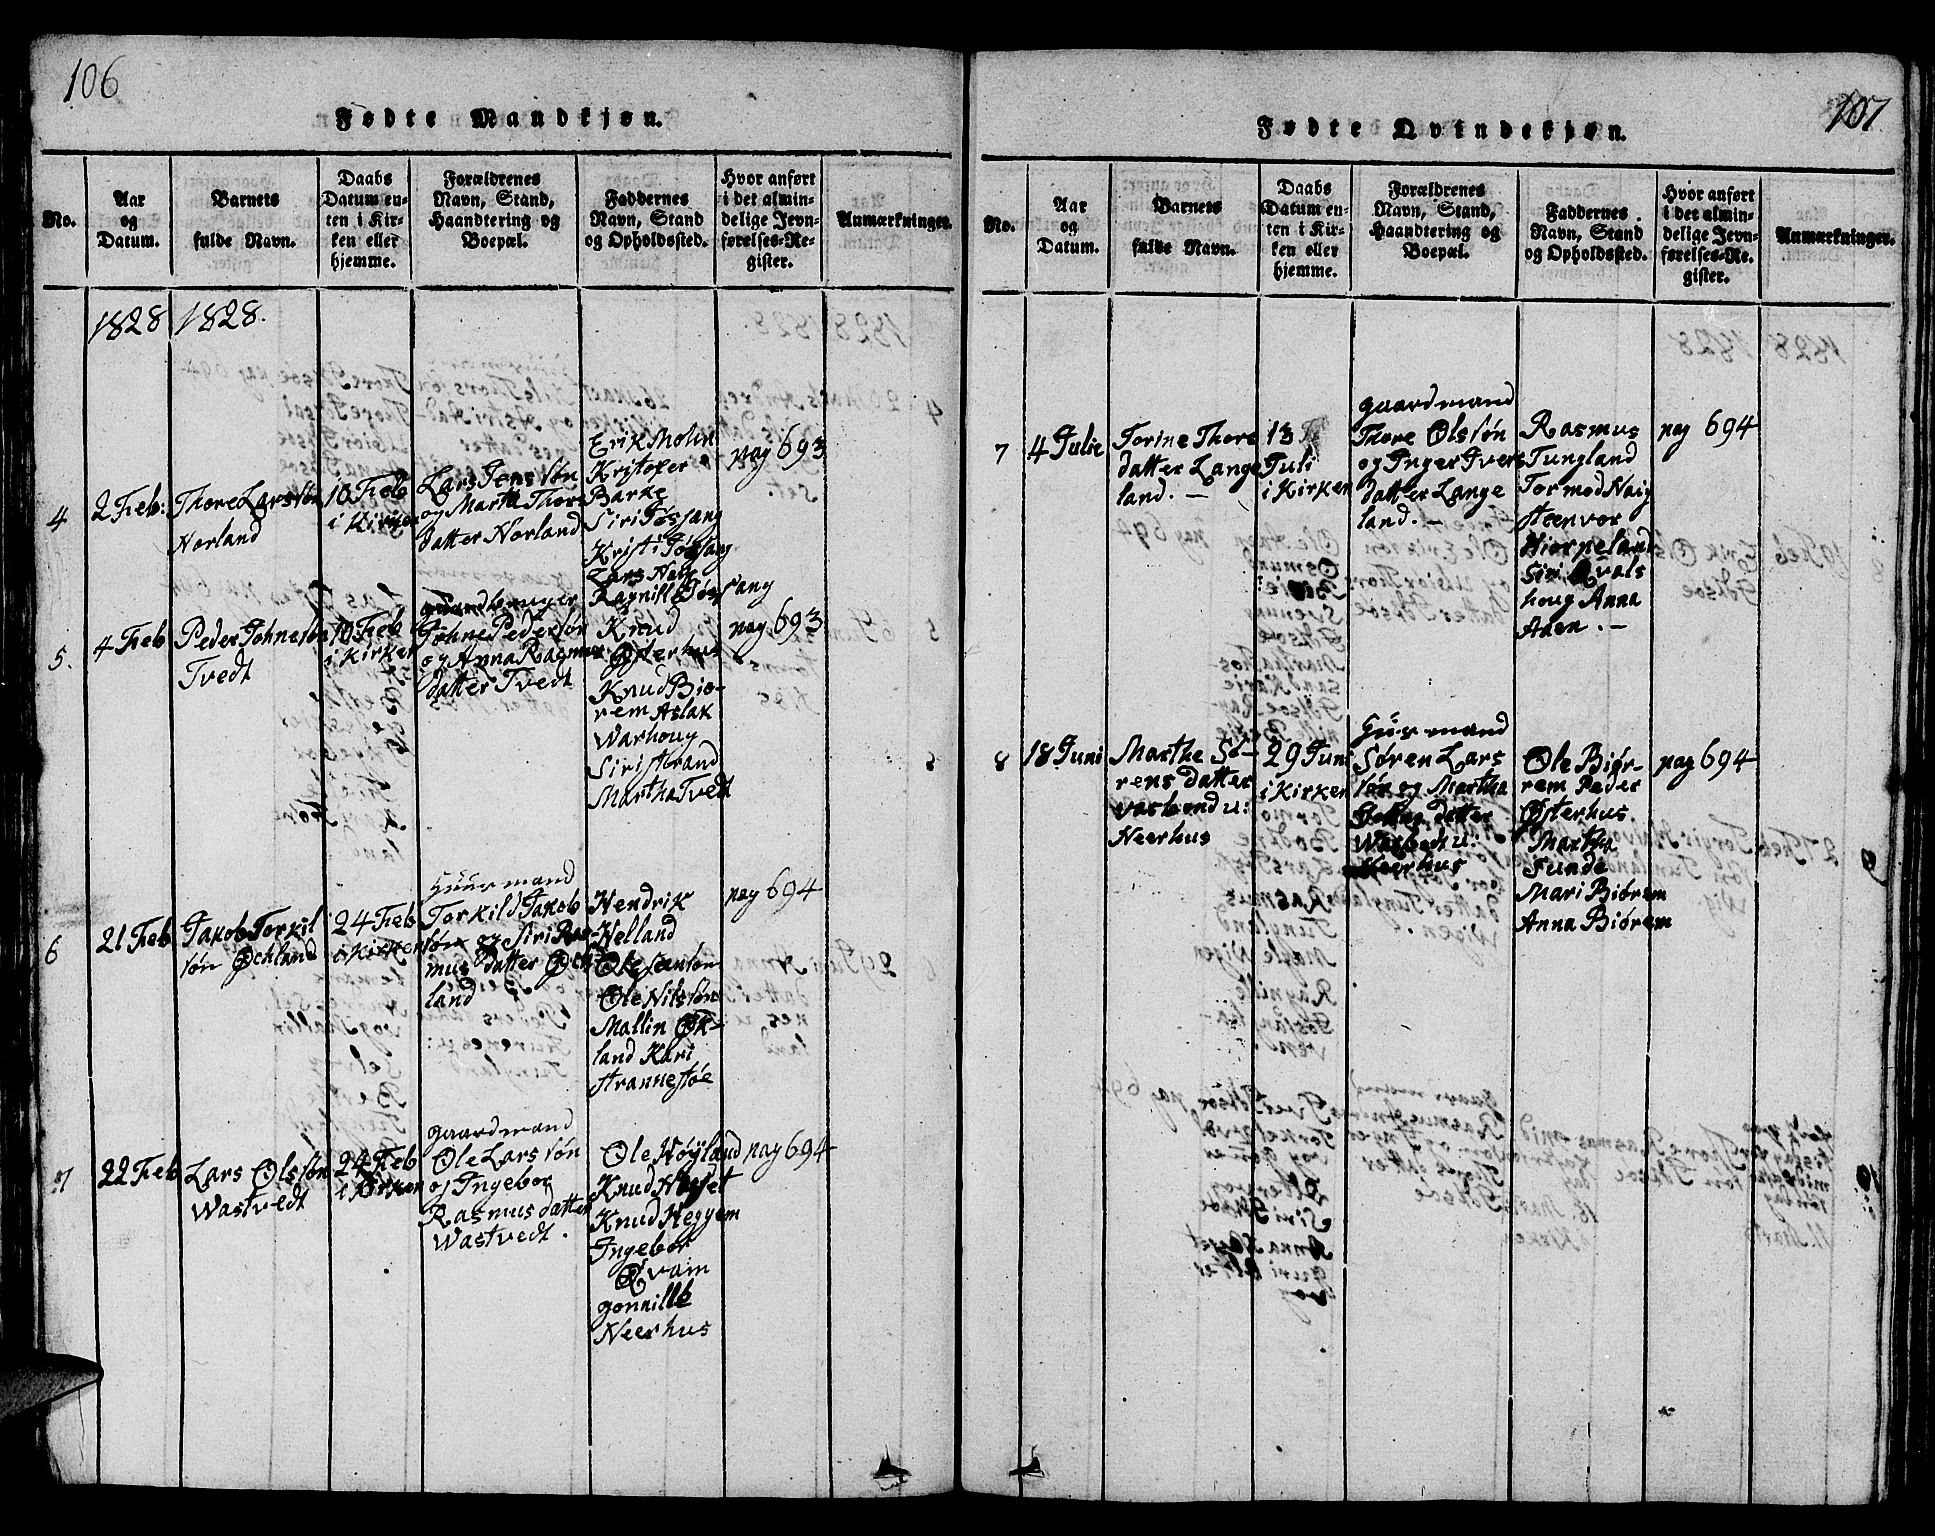 106
Fødte Mandkjøn.
No.
Aar
og
Datum.
Barnets
fulde Navn.
Daabs
Datum en-
ten i Kir-
ken eller
hjemme.
Forældrenes
Navn, Stand,
Haandtering og
Boepæl.
Faddernes
Navn, Stand
og Opholdssted.
Hvor anført
i det almin-
delige Jevn-
førelses-Re-
gister.
Anmærkninger.
1828
1828.
4
2 Feb:
Thore Larssøn
Norland
10 Feb
i Kirken
Lars Jenssøn
og Martha Thors
datter Norland
Erik Molin
Kristofer
Barke
Siri Fossang
Kristi Fossang
Lars Nag
Ragnill Fossang
pag 693
5.
4 Feb
Peder Johnessøn
Tvedt
10 Feb
i Kirken
gaardbruger
Johne Pedersøn
og Anna Rasmus
datter Tvedt
Knud
Østerhus
Knud Biø-
rem Aslak
Warhoug
Siri Strand
Martha Tvedt
pag 693
6
21 Feb
Jakob Torkil
søn Øchland
24 Feb
i Kirken
Huusmand
Torkild Jakob
søn og Siri Ras-
mus datter Øch-
land
Hendrik
Helland
Ole
Ole Nilssøn
Mallin Øk-
land Kari
Strannesøe
pag 694
7
22 Feb
Lars Olssøn
Wastvedt
24 Feb
i Kirken
gaardmand
Ole Larssøn
og Ingebor
Rasmusdatter
Wastvedt.
Ole Høyland
Knud Neset
Knud Heggem
Ingebor
Qvam
gonnille
Neerhus
pag 694
107
Fødte Qvindekjøn.
No.
Aar
og
Datum.
Barnets
fulde Navn.
Daabs
Datum en-
ten i Kir-
ken eller
hjemme.
Forældrenes
Navn, Stand,
Haandtering og
Boepæl.
Faddernes
Navn, Stand
og Opholdssted.
Hvor anført
i det almin-
delige Jevn-
førelses-Re-
gister.
Anmærkninger.
7
4 Julie
Torine Thore
datter Lange
land. —
13
Juli
i Kirken
gaardmand
Thore Olssøn
og Inger Ivers
datter Lange
land. —
Rasmus
Tungland
Tormod Naig
Steenvor
Hiorpeland
Siri Qvals
houg Anna
Aaen. —
pag 694
8
18 Juni
Marthe Sø-
rens datter
vasbond u:
Neerhus
29 Juni
i Kirken
Huusmand
Søren Lars
søn og Martha
datter
u:
Neerhus
Ole Biør-
rem Peder
Østerhus.
Martha
Sunde
Mari Biørem
Anna Biørem
pag 694